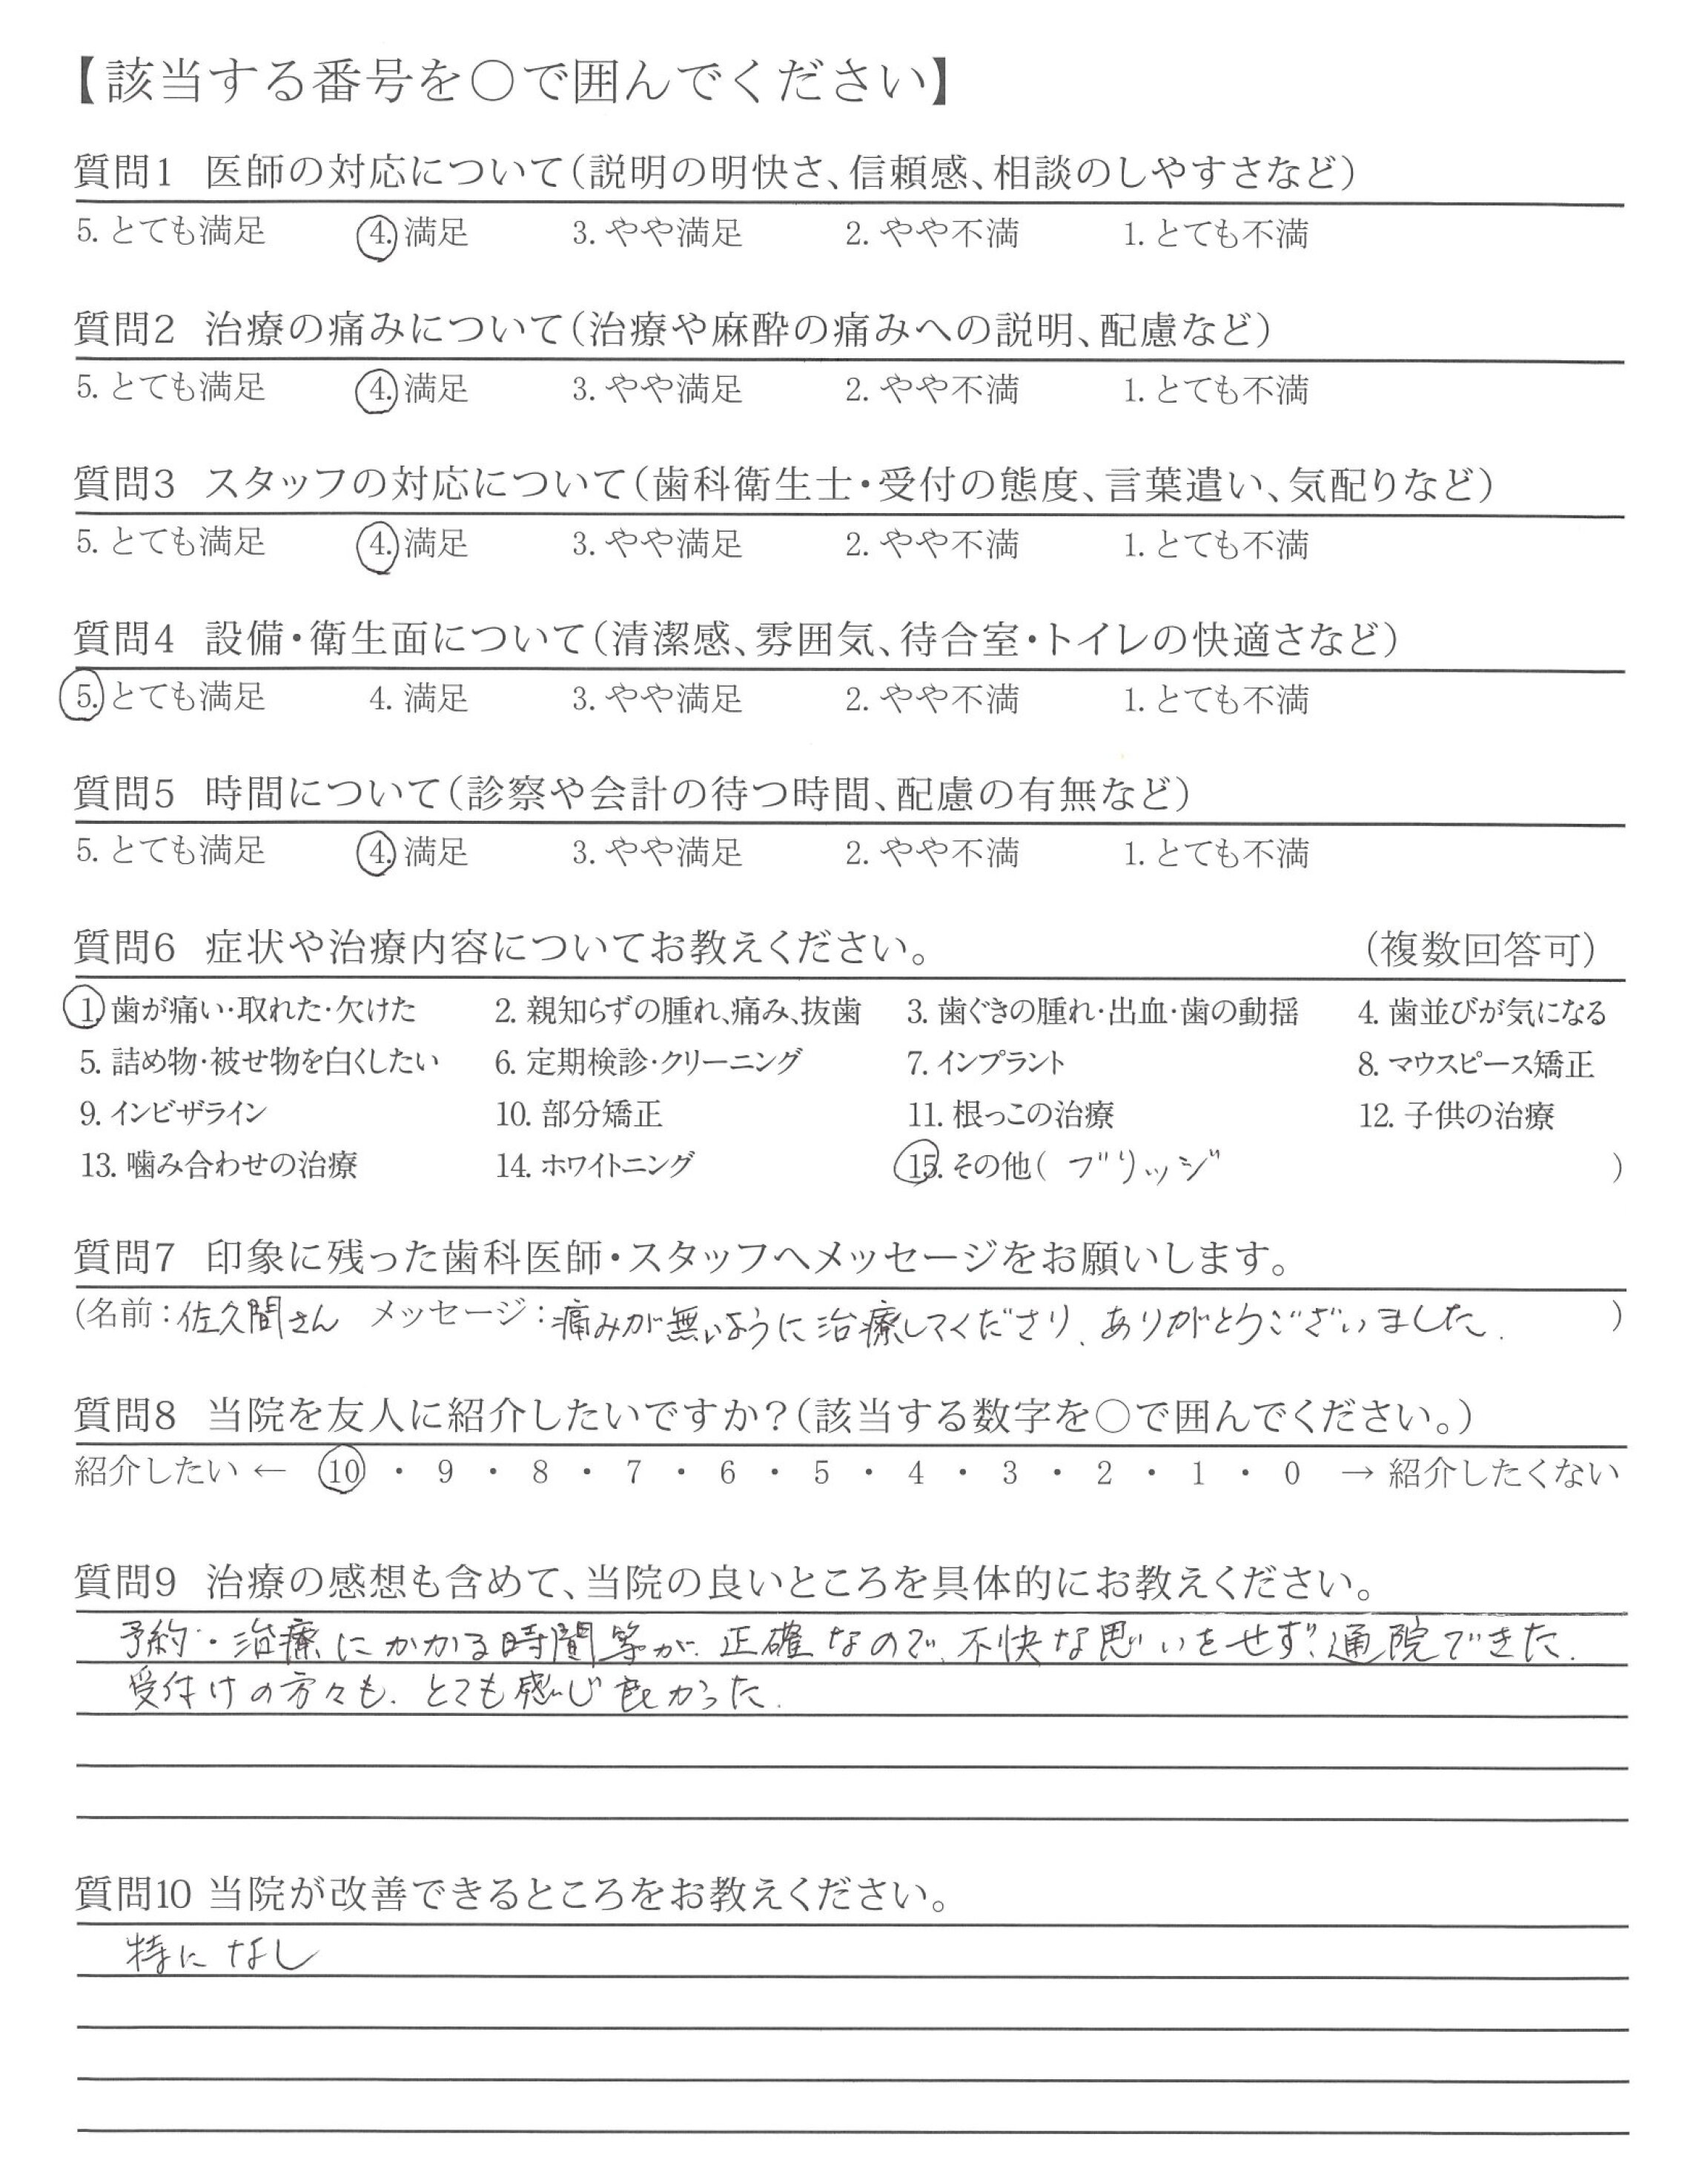 【該当する番号を○で囲んでください】
質問1 医師の対応について(説明の明快さ、信頼感、相談のしやすさなど)
5. とても満足 4. 満足 3. やや満足 2. やや不満 1. とても不満
質問2 治療の痛みについて(治療や麻酔の痛みへの説明、配慮など)
5. とても満足 4. 満足 3. やや満足 2. やや不満 1. とても不満
質問3 スタッフの対応について(歯科衛生士・受付の態度、言葉遣い、気配りなど)
5. とても満足 4. 満足 3. やや満足 2. やや不満 1. とても不満
質問4 設備・衛生面について(清潔感、雰囲気、待合室・トイレの快適さなど)
5. とても満足 4. 満足 3. やや満足 2. やや不満 1. とても不満
質問5 時間について(診察や会計の待つ時間、配慮の有無など)
5. とても満足 4. 満足 3. やや満足 2. やや不満 1. とても不満
質問6 症状や治療内容についてお教えください。 (複数回答可)
1. 歯が痛い・取れた・欠けた 2. 親知らずの腫れ、痛み、抜歯 3. 歯ぐきの腫れ・出血・歯の動揺 4. 歯並びが気になる
5. 詰め物・被せ物を白くしたい 6. 定期検診・クリーニング 7. インプラント 8. マウスピース矯正
9. インビザライン 10. 部分矯正 11. 根っこの治療 12. 子供の治療
13. 噛み合わせの治療 14. ホワイトニング 15. その他( ブリッジ )
質問7 印象に残った歯科医師・スタッフへメッセージをお願いします。
(名前：佐久間さん メッセージ：痛みが無いように治療してくださり、ありがとうございました. )
質問8 当院を友人に紹介したいですか？(該当する数字を○で囲んでください。)
紹介したい ← 10 ・ 9 ・ 8 ・ 7 ・ 6 ・ 5 ・ 4 ・ 3 ・ 2 ・ 1 ・ 0 → 紹介したくない
質問9 治療の感想も含めて、当院の良いところを具体的にお教えください。
予約・治療にかかる時間等が、正確なので、不快な思いをせず、通院できた.
受付けの方々も、とても感じ良かった.
質問10 当院が改善できるところをお教えください。
特になし